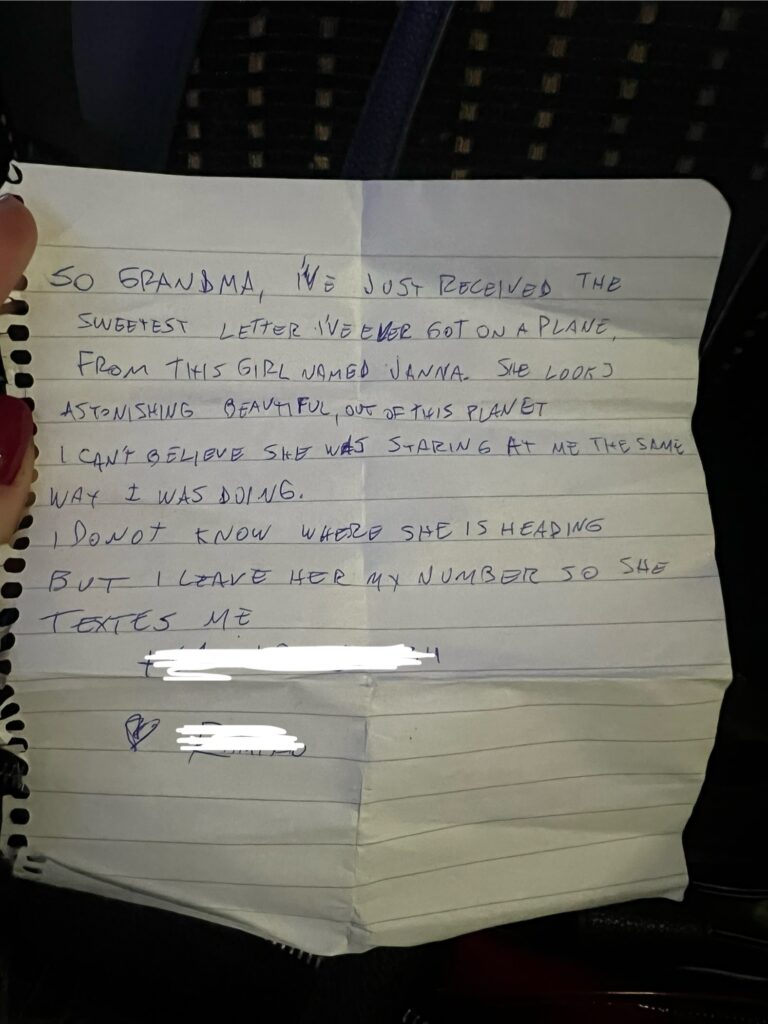 SO GRANDMA, I'VE JUST RECEIVED THE
SWEETEST LETTER I'VE EVER GOT ON A PLANE,
FROM THIS GIRL NAMED JANNA. SHE LOOKS
ASTONISHING BEAUTIFUL, OUT OF THIS PLANET
I CAN'T BELIEVE SHE WAS STARING AT ME THE SAME
WAY I WAS DOING.
I DO NOT KNOW WHERE SHE IS HEADING
BUT I LEAVE HER MY NUMBER SO SHE
TEXTES ME